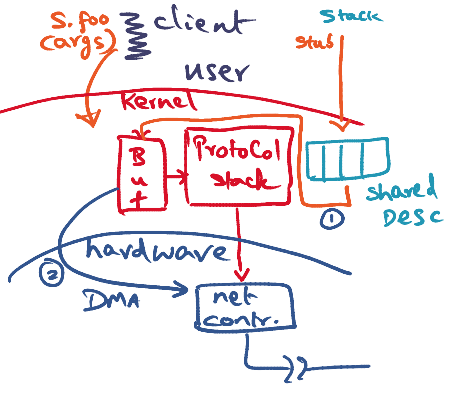 S.foo
(args)
client
Stack
stub
user
Kernel
But
Protocol
stack
shared
Desc
1
hardware
2
DMA
net
contr.